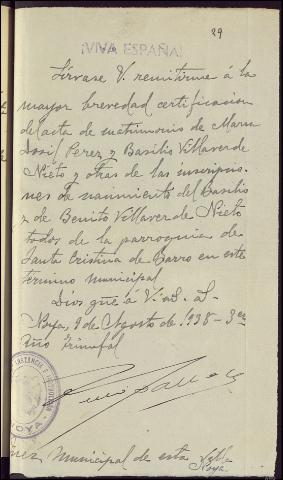 29
¡VIVA ESPAÑA!
Sírvase V. remitirme á la
mayor brevedad certificacion
del acta de matrimonio de Maria
Josefa Perez y Basilio Villaverde
Nieto y otras de las inscripcio-
nes de nacimiento del Basilio
y de Benito Villaverde Nieto
todos de la parroquia de
Santa Cristina de Barro en este
termino municipal
Dios gue á V. a. S.
Noya, 9 de Agosto de 1938 - 3er
Año Triunfal
NOYA
Juez Municipal de esta Villa
Noya